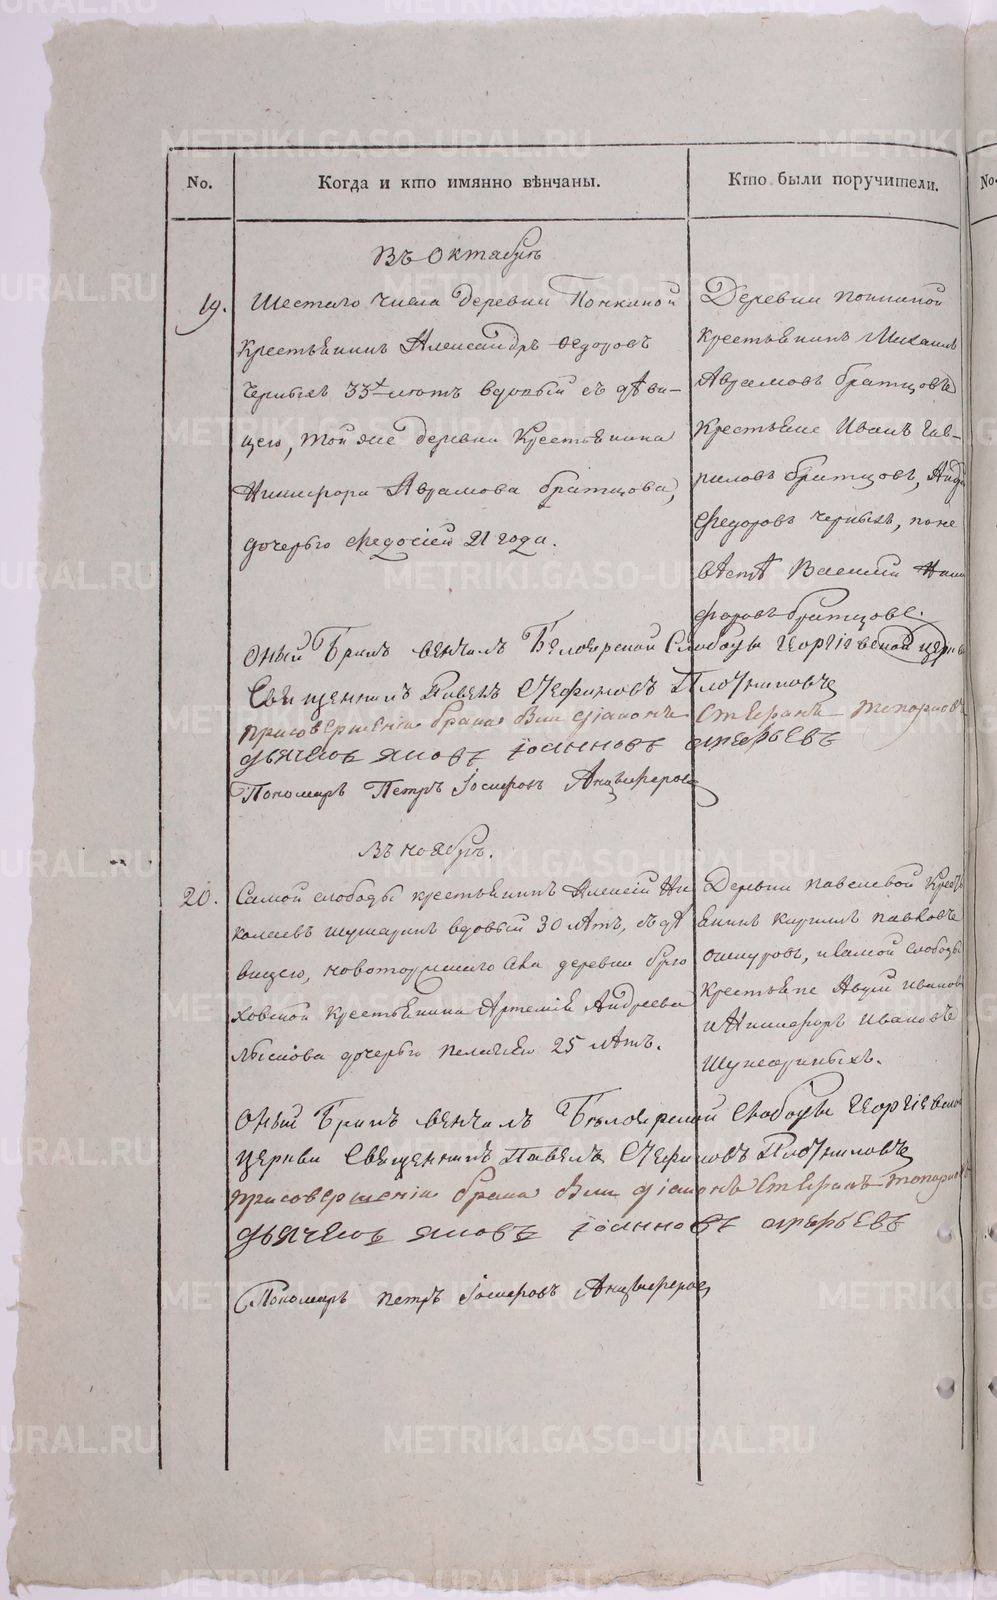 No.
Когда и кто имянно вѣнчаны.
Кто были поручители.
Въ Октябрѣ
19.
Шестаго числа деревни
Крестьянинъ Александръ Ѳедоровъ
Черныхъ 33хъ лѣтъ вдовый съ дѣви-
цею, той же деревни Крестьянина
Никифора Аврамова братцова,
дочерью Ѳедосіей 21 года.
Деревни
Крестьянинъ Михаилъ
Аврамовъ братцовъ
Крестьяне Иванъ Гав-
риловъ братцовъ,
Ѳедоровъ черныхъ, по не
вѣстѣ Василий Ники
форовъ братцовъ.
Оный Бракъ венчалъ Белоярской Слободы Георгіевской церкви
Священникъ Павелъ Стефановъ Плотниковъ
при совершеніи брака были діаконъ Стефанъ Топорковъ
дьячекъ яковъ іоанновъ
Пономарь Петръ Іосифовъ Анцыферовъ
Въ ноябрѣ.
20.
Самой слободы крестьянинъ Алексѣй Ни
колаевъ шушаринъ вдовый 30 лѣтъ, съ дѣ
вицею, деревни
крестьянина Артемія Андреева
дочерью пелагѣю 25 лѣтъ.
Деревни Крест
янинъ кирилъ павловъ
и самой слободы
Крестьяне ивановъ
и Никифоръ Ивановъ
Шушариныхъ.
Оный Бракъ венчалъ Белоярской Слободы Георгіевской
церкви Священникъ Павелъ Стефановъ Плотниковъ
при совершеніи брака были діаконъ Стефанъ топорковъ
дьячекъ яковъ іоанновъ
Пономарь петръ Іосифовъ Анцыферовъ
METRIKI.GASO-URAL.RU